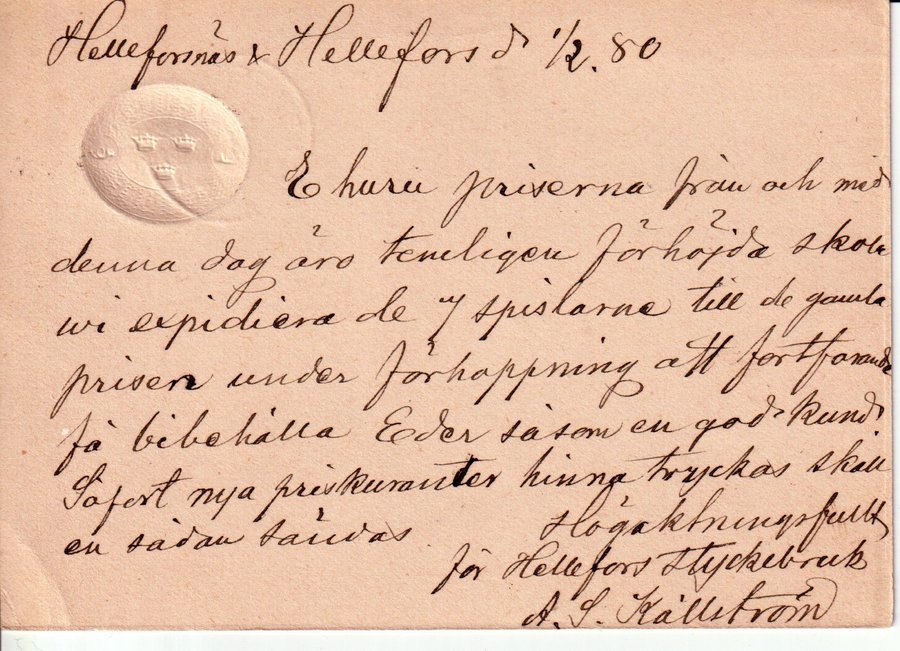 Helleforsnäs & Hellefors d 1/2. 80
Ehuru priserna från och med
denna dag äro temeligen förhöjda skola
wi expidiera de 7 spislarne till de gamla
prisen under förhoppning att fortfarande
få bibehålla Eder såsom en god kund
Såfort nya priskuranter hinna tryckas skall
en sådan sändas.
Högaktningsfullt
för Hellefors Styckebruk
A. S. Källström